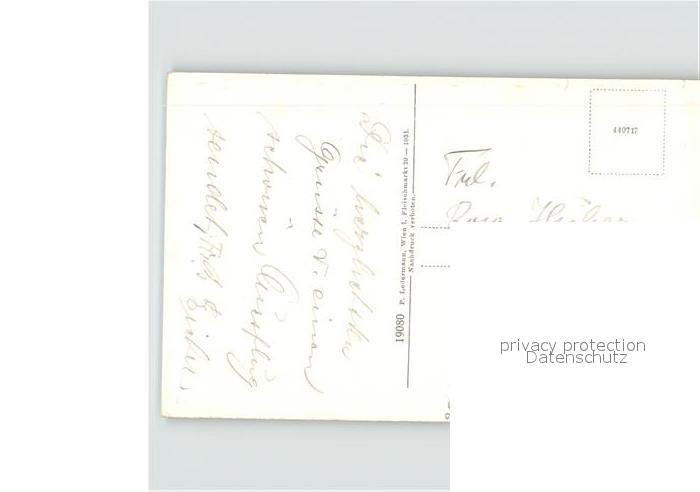 Die herzlichsten
Grüsse v. einem
schönen Ausflug
sendet, Fritz
19080 P. Ledermann, Wien I, Fleischmarkt 20 — 1931.
Nachdruck verboten.
440717
Frl.
Rosa
privacy protection
Datenschutz